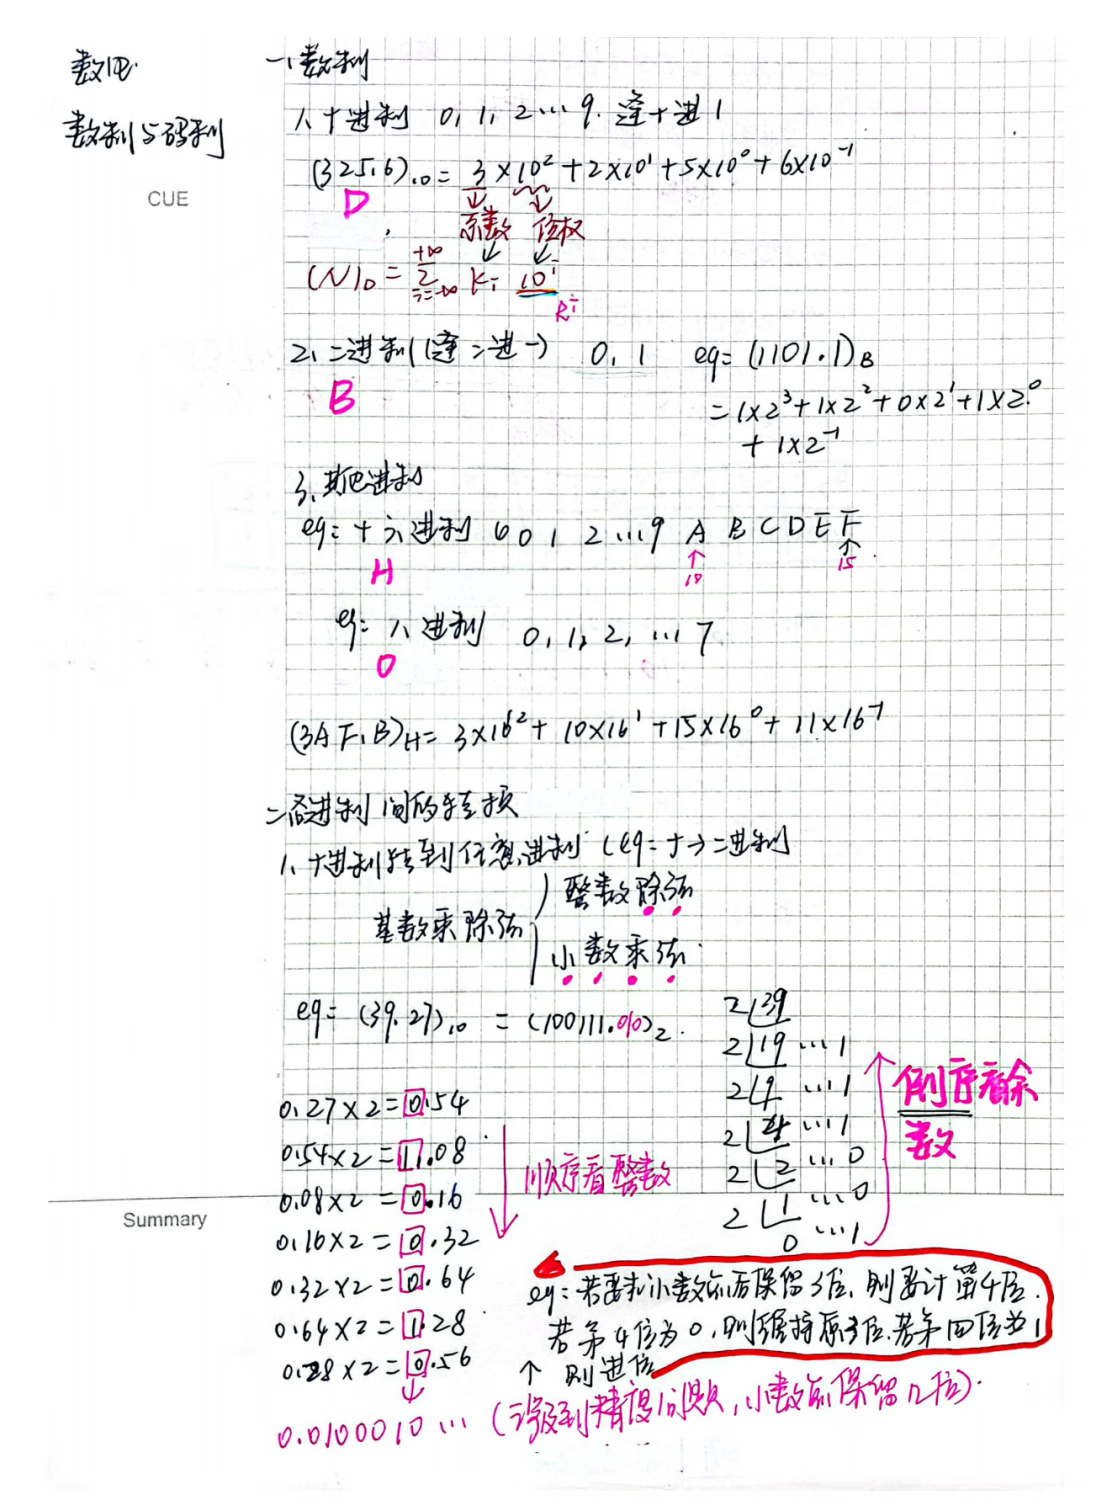 数电
数制与码制
CUE
一、数制
1、十进制 0, 1, 2 … 9. 逢十进1
(325.6)₁₀ = 3×10² + 2×10¹ + 5×10⁰ + 6×10⁻¹
D
系数 位权
(N)D = +∞ Σ i=-∞ Ki 10ⁱ
Rⁱ
2、二进制(逢二进一) 0, 1 eg: (1101.1)B
B
= 1×2³ + 1×2² + 0×2¹ + 1×2⁰
+ 1×2⁻¹
3、其他进制
eg: 十六进制 0 1 2 … 9 A B C D E F
H ↑10 ↑15
eg: 八进制 0, 1, 2, … 7
O
(3AF.B)H = 3×16² + 10×16¹ + 15×16⁰ + 11×16⁻¹
二、各进制间的转换
1、十进制转到任意进制 (eg: 十→二进制
基数乘除法
整数除法
小数乘法
eg: (39.27)₁₀ = (100111.010)₂.
2 39
2 19 … 1
2 9 … 1
2 4 … 1
2 2 … 0
2 1 … 0
0 … 1
倒序看余
数
0.27×2 = 0.54
0.54×2 = 1.08
0.08×2 = 0.16
0.16×2 = 0.32
0.32×2 = 0.64
0.64×2 = 1.28
0.28×2 = 0.56
顺序看整数
Summary
eg: 若要求小数点后保留3位, 则要计第4位.
若第4位为0, 则维持原3位. 若第四位为1
↑ 则进位
0.0100010 … (涉及到精度问题, 小数点保留n位).